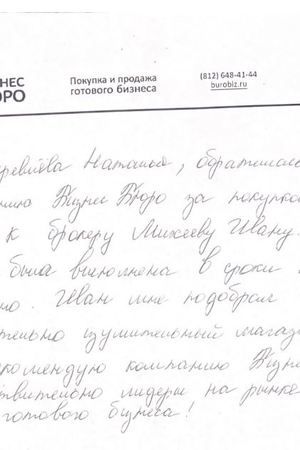 НЕС
ЮРО
Покупка и продажа
готового бизнеса
(812) 648-41-44
burobiz.ru
Наталья, обратилась
Бизнес Бюро за покупкой
к брокеру Михееву Ивану.
была выполнена в сроки
но. Иван мне подобрал
тельно изумительный магаз
комендую компанию Бизне
ствительно лидеры на рынке
готового бизнеса!